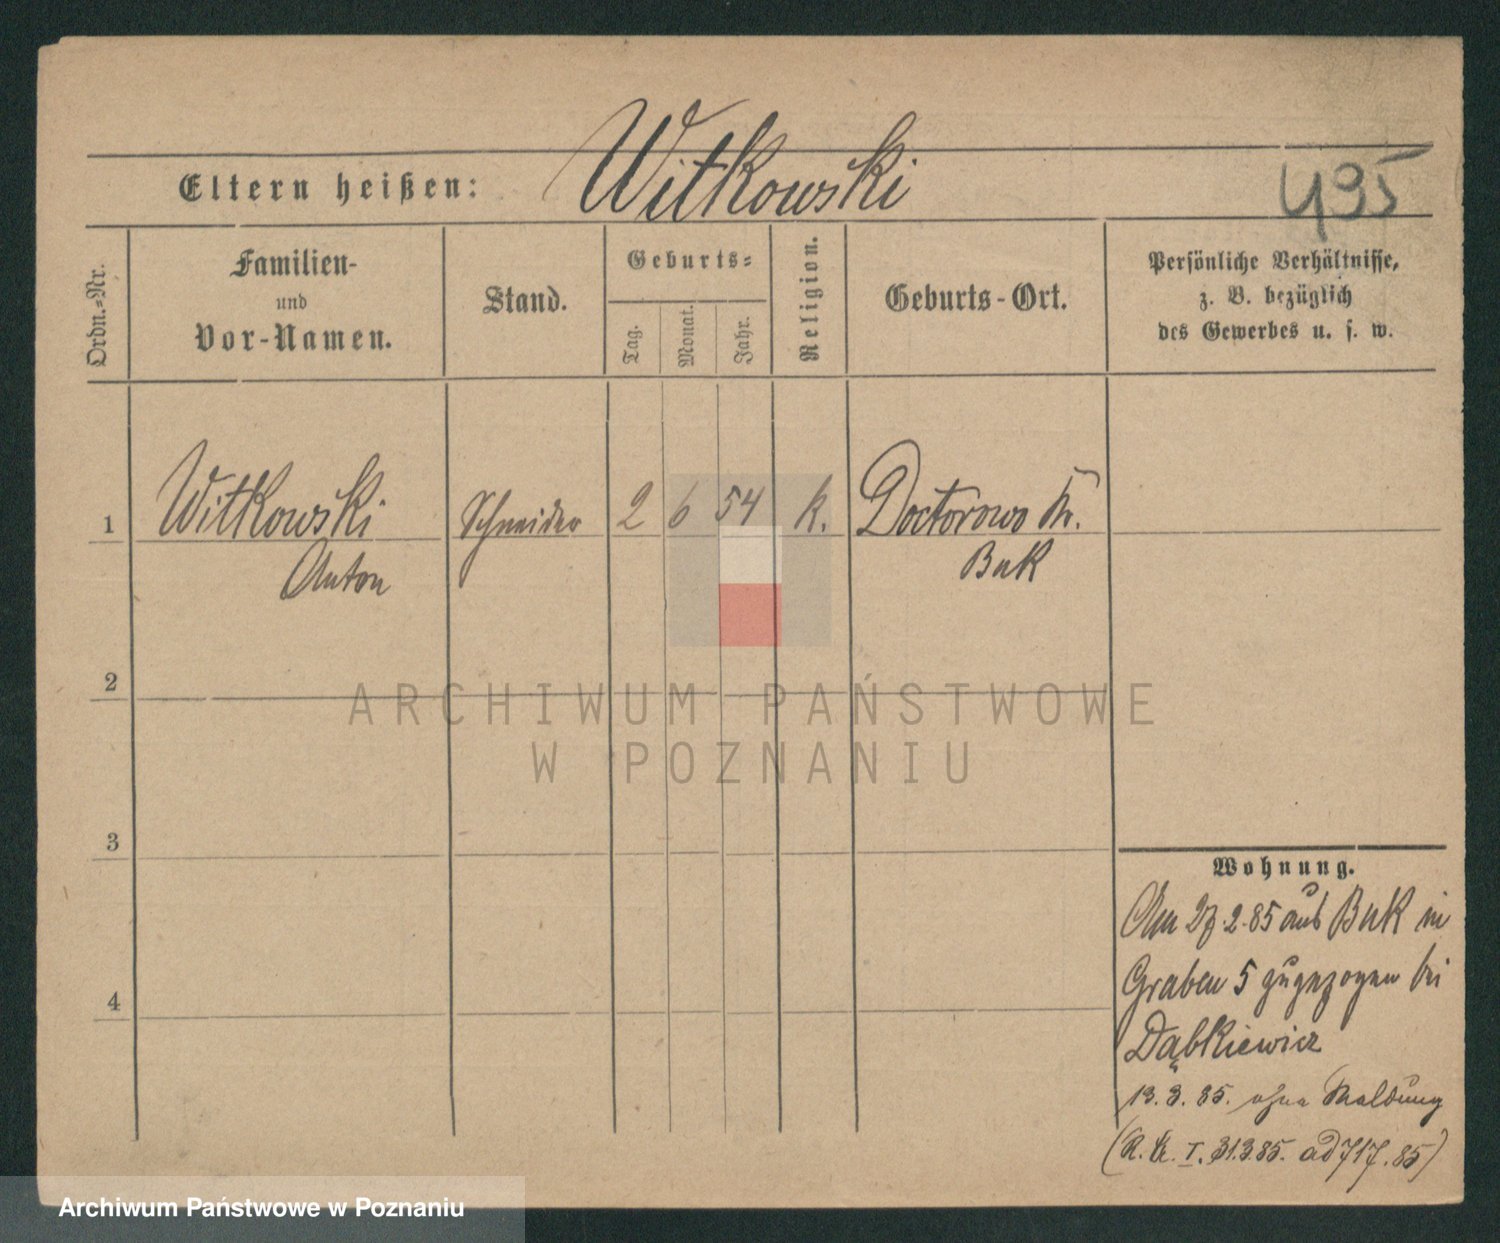 Witkowski
Eltern heißen:
495
Ordn.-Nr.
Familien-
und
Vor-Namen.
Stand.
Geburts-
Tag.
Monat.
Jahr.
Religion.
Geburts-Ort.
Persönliche Verhältnisse,
z. B. bezüglich
des Gewerbes u. s. w.
1 Witkowski Schneider 2 6 54 k. Doctorowo Kr.
Anton Buk
2
ARCHIWUM PAŃSTWOWE
W POZNANIU
3
4
Wohnung.
Am 27.2.85 aus Buk in
Graben 5 zugezogen bei
Dąbkiewicz
13.3.85. ohne Meldung
(R. K. I. 31.3.85. ad 717.85)
Archiwum Państwowe w Poznaniu